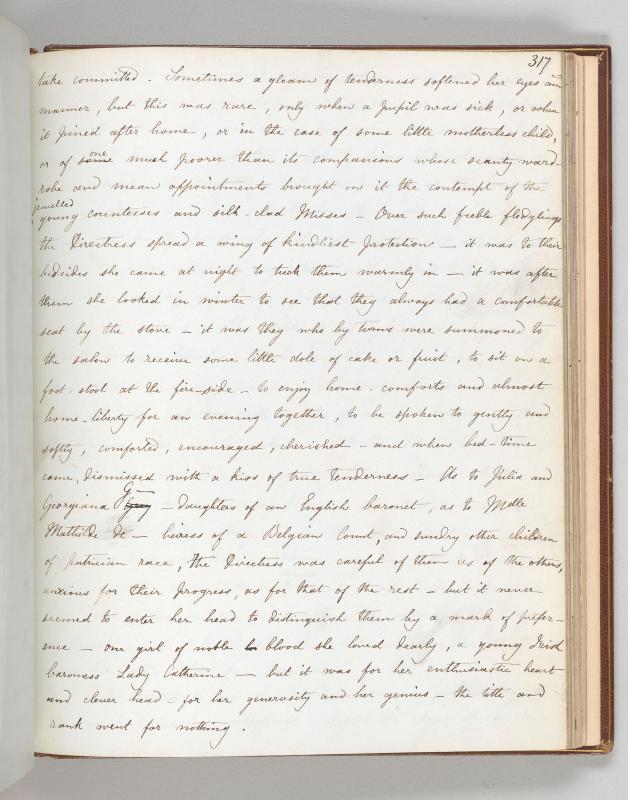 317
take committed. Sometimes a gleam of tenderness softened her eyes and
manner, but this was rare, only when a pupil was sick, or when
it pined after home, or in the case of some little motherless child,
or of some one much poorer than its companions whose scanty ward-
robe and mean appointments brought on it the contempt of the
jewelled
young countesses and silk-clad Misses – Over such feeble fledglings
the Directress spread a wing of kindliest protection – it was to their
bedsides she came at night to tuck them warmly in – it was after
them she looked in winter to see that they always had a comfortable
seat by the stove – it was they who by turns were summoned to
the salon to receive some little dole of cake or fruit, to sit on a
foot-stool at the fire-side – to enjoy home-comforts and almost
home-liberty for an evening together, to be spoken to gently and
softly, comforted, encouraged, cherished – and when bed-time
came, dismissed with a kiss of true tenderness – As to Julia and
Georgiana Grey G— – daughters of an English baronet, as to Mdlle
Mathilde de — heiress of a Belgian Count, and sundry other children
of patrician race, the Directress was careful of them as of the others,
anxious for their progress, as for that of the rest – but it never
seemed to enter her head to distinguish them by a mark of prefer-
ence – one girl of noble blood she loved dearly, a young Irish
baroness Lady Catherine — but it was for her enthusiastic heart
and clever head – for her generosity and her genius – the title and
rank went for nothing.